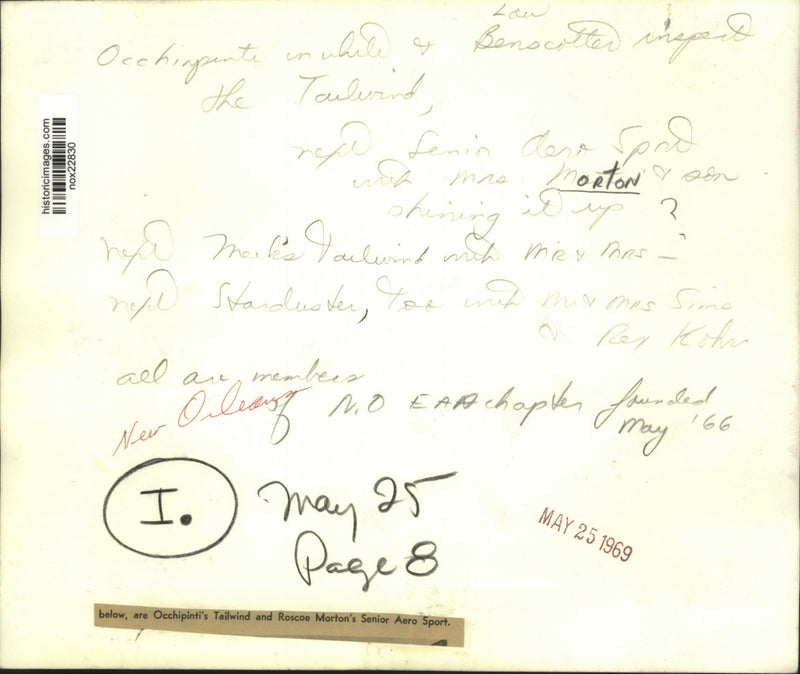 Lou
Occhipinti in white & Benscotter inspect
the Tailwind,
next Senior Aero Sport
with Mrs. MORTON & son
shining it up ?
next Mark's Tailwind with MR & MRS –
next Starduster, Too with Mr & MRS Sims
& Rex Kohn
all are members
New Orleans
of N.O EAA chapter founded
May '66
I. May 25
Page 8
MAY 25 1969
below, are Occhipinti's Tailwind and Roscoe Morton's Senior Aero Sport.
historicimages.com
nox22830